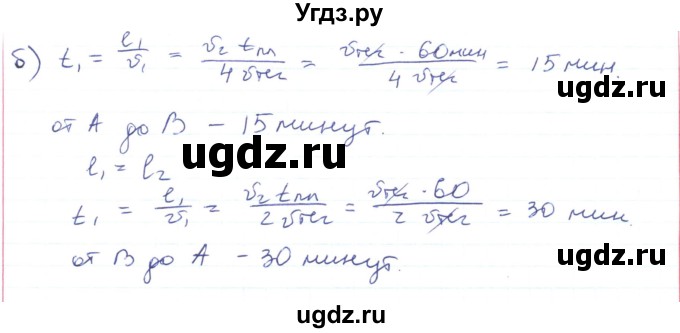 Угдз.ру
б) t₁ = l₁/v₁ = v₂ tпл/4 vтеч = vтеч · 60 мин/4 vтеч = 15 мин.
ugdz.ru
от А до В – 15 минут.
ugdz.ru
l₁ = l₂
t₁ = l₁/v₁ = v₂ tпл/2 vтеч = vтеч · 60/2 vтеч = 30 мин.
ugdz.ru
от В до А – 30 минут.
ugdz.ru